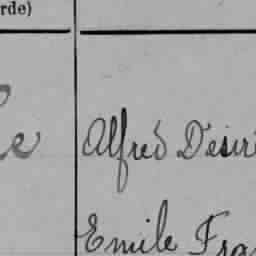 rde)
Alfred Désiré
Emile Fra